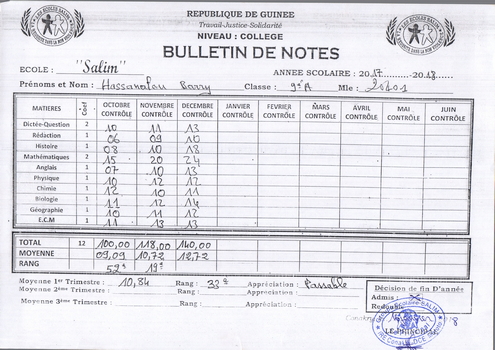 REPUBLIQUE DE GUINEE
Travail-Justice-Solidarité
NIVEAU : COLLEGE
BULLETIN DE NOTES
ECOLE : "Salim" ANNEE SCOLAIRE : 2017 2018
Prénoms et Nom : Hassanatou Barry Classe : 9e A Mle : 20101
MATIERES OCTOBRE CONTRÔLE NOVEMBRE CONTRÔLE DECEMBRE CONTRÔLE JANVIER CONTRÔLE FEVRIER CONTRÔLE MARS CONTRÔLE AVRIL CONTRÔLE MAI CONTRÔLE JUIN CONTRÔLE
Dictée-Question 2 10 11 13
Rédaction 1 06 09 10
Histoire 1 08 10 18
Mathématiques 2 15 20 24
Anglais 1 07 10 13
Physique 1 10 12 12
Chimie 1 12 10 11
Biologie 1 11 12 14
Géographie 1 10 11 12
E.C.M 1 11 13 13
TOTAL 12 100,00 118,00 140,00
MOYENNE 09,09 10,72 12,72
RANG 52e 19e
Moyenne 1er Trimestre : 10,84 Rang : 33e Appréciation : Passable
Moyenne 2ème Trimestre : Rang : Appréciation :
Moyenne 3ème Trimestre : Rang : Appréciation :
Décision de fin D'année
Admis :
LE PRINCIPAL